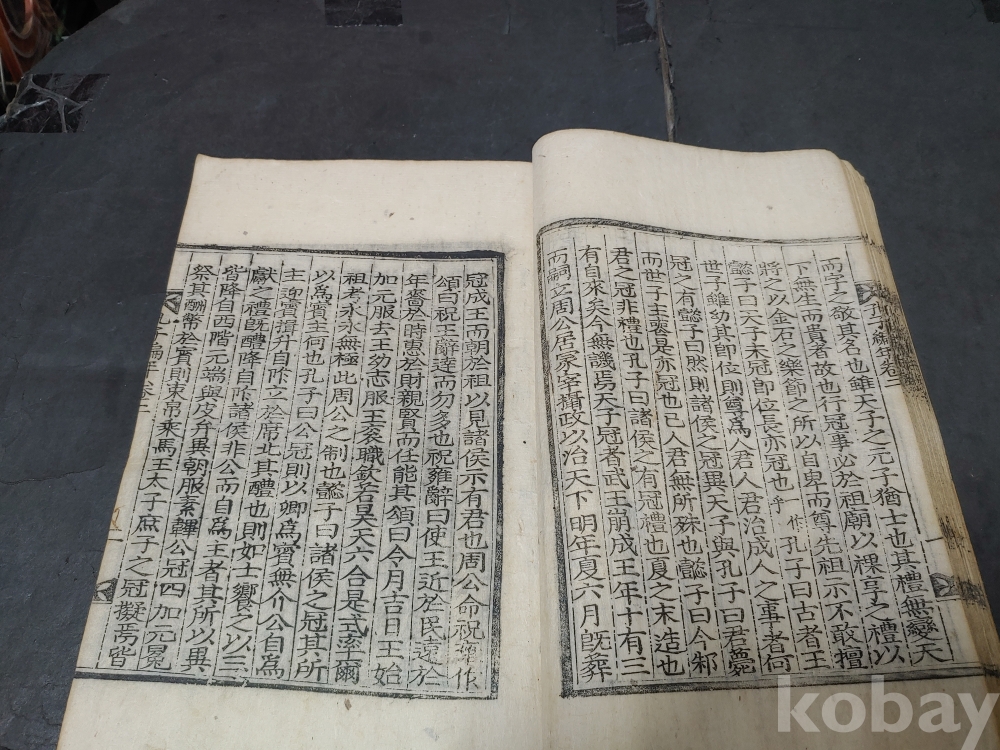 孔子編年卷二
而字之敬其名也雖天子之元子猶士也其禮無變天
下無生而貴者故也行冠事必於祖廟以祼享之禮以
將之以金石之樂節之所以自卑而尊先祖示不敢擅
懿子曰天子未冠即位長亦冠也乎作孔子曰古者王
世子雖幼其即位則尊為人君人君治成人之事者何
冠之有懿子曰然則諸侯之冠異天子與孔子曰君薨
而世子主喪是亦冠也已人君無所殊也懿子曰今邾
君之冠非禮也孔子曰諸侯之有冠禮也夏之末造也
有自來矣今無譏焉天子冠者武王崩成王年十有三
而嗣立周公居冢宰攝政以治天下明年夏六月旣葬
冠成王而朝於祖以見諸侯示有君也周公命祝雍作
頌曰祝王辭達而勿多也祝雍辭曰使王近於民遠於
年嗇於時惠於財親賢而任能其頌曰令月吉日王始
加元服去王幼志服王衮職欽若昊天六合是式率爾
祖考永永無極此周公之制也懿子曰諸侯之冠其所
以為賓主何也孔子曰公冠則以卿為賓無介公自為
主迎賓揖升自阼立於席北其醴也則如士饗之以三
獻之禮旣醴降自阼諸侯非公而自為王者其所以異
皆降自西階元端與皮弁異朝服素韠公冠四加元冕
祭其酬幣於賓則束帛乘馬王太子庶子之冠擬焉皆
kobay